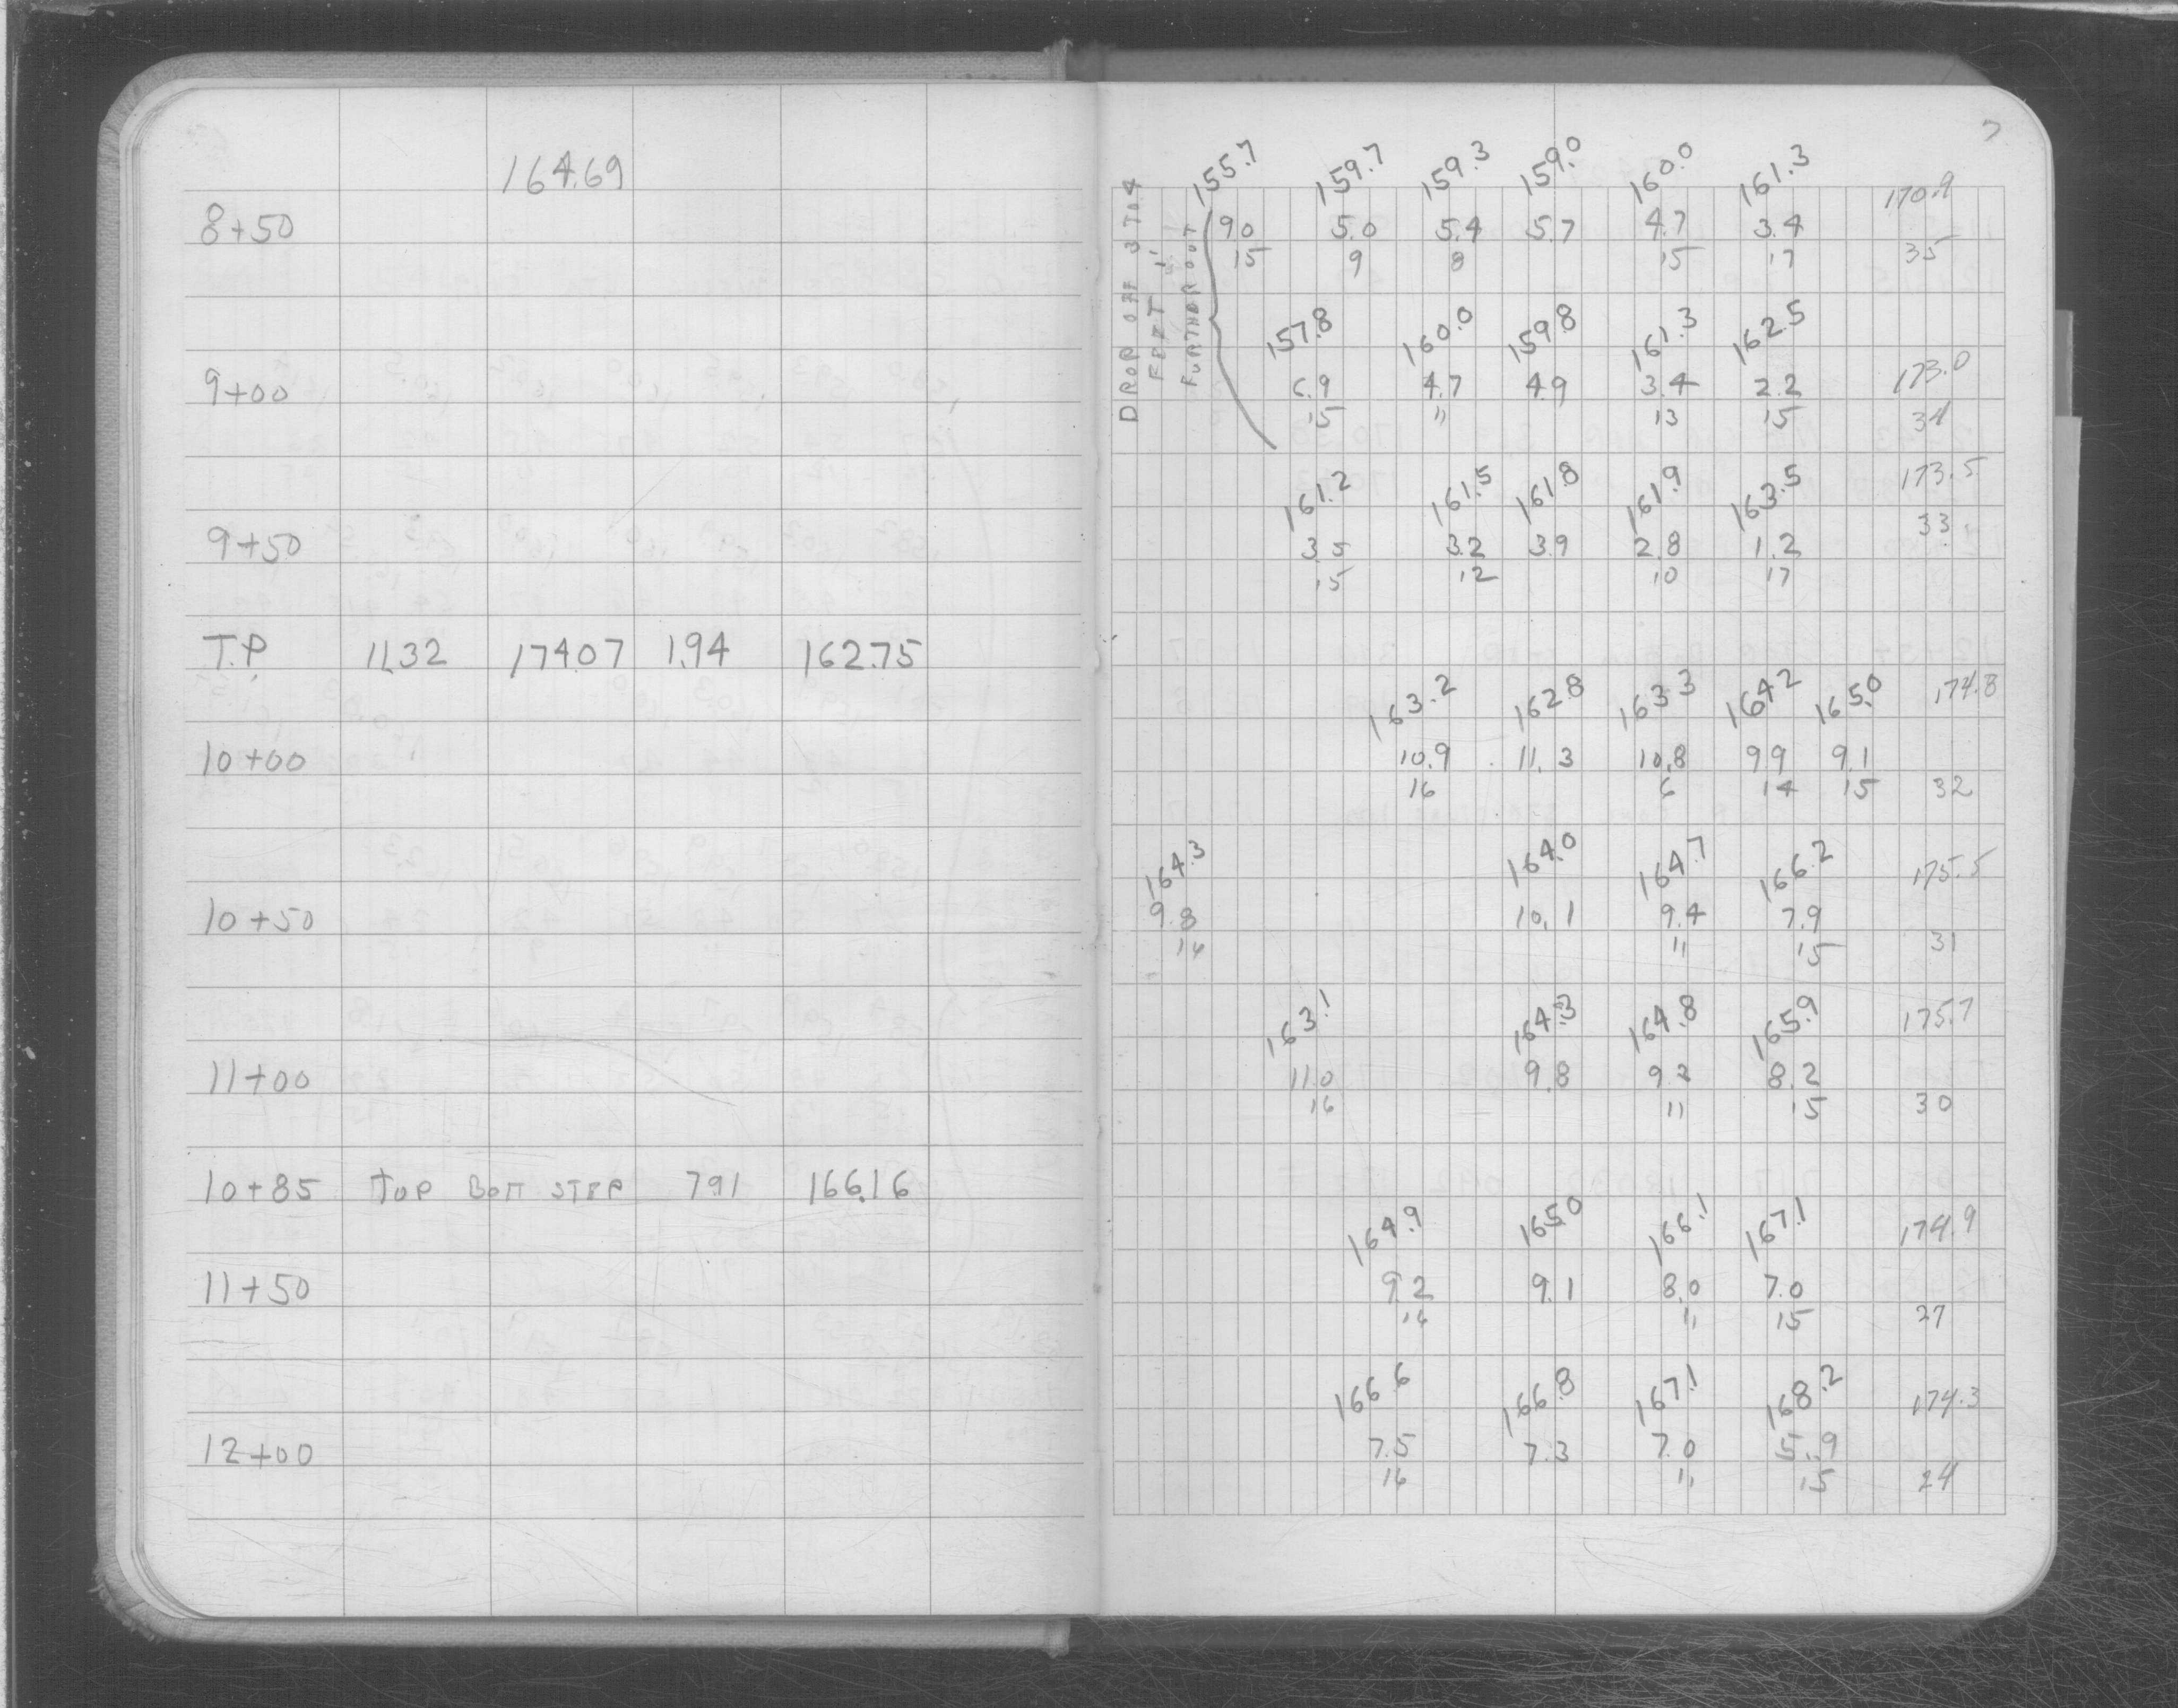 164.69
8+50
9+00
9+50
T.P. 11.32 174.07 1.94 162.75
10+00
10+50
11+00
10+85 TOP BOTT STEP 7.91 166.16
11+50
12+00
7
DROP OFF 3 TO 4
FEET 1'
FURTHER OUT
155.7 159.7 159.3 159.0 160.0 161.3 170.9
9.0 5.0 5.4 5.7 4.7 3.4
15 9 8 15 17 35
157.8 160.0 159.8 161.3 162.5 173.0
6.9 4.7 4.9 3.4 2.2
15 11 13 15 34
161.2 161.5 161.8 161.9 163.5 173.5
3.5 3.2 3.9 2.8 1.2 33
15 12 10 17
163.2 162.8 163.3 164.2 165.0 174.8
10.9 11.3 10.8 9.9 9.1
16 6 14 15 32
164.3 164.0 164.7 166.2 175.5
9.8 10.1 9.4 7.9
16 11 15 31
163.1 164.3 164.8 165.9 175.7
11.0 9.8 9.2 8.2
16 11 15 30
164.9 165.0 166.1 167.1 174.9
9.2 9.1 8.0 7.0
16 11 15 27
166.6 166.8 167.1 168.2 174.3
7.5 7.3 7.0 5.9
16 11 15 24